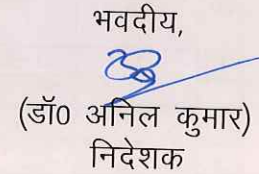 भवदीय,
(डॉ0 अनिल कुमार)
निदेशक